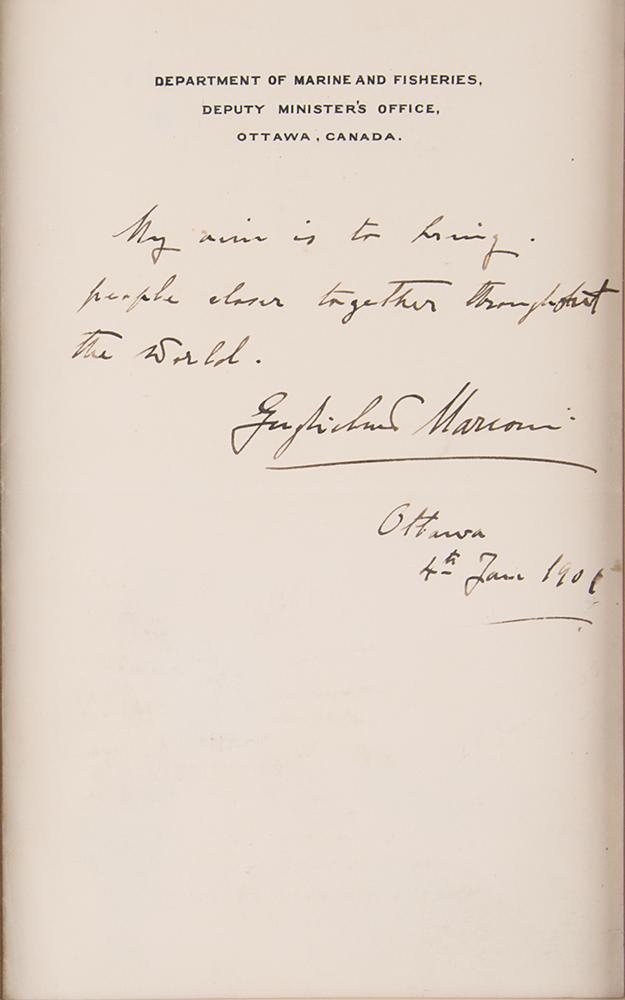 DEPARTMENT OF MARINE AND FISHERIES,
DEPUTY MINISTER'S OFFICE,
OTTAWA, CANADA.
My aim is to bring
people closer together throughout
the World.
Guglielmo Marconi
Ottawa
4th Jan 1901